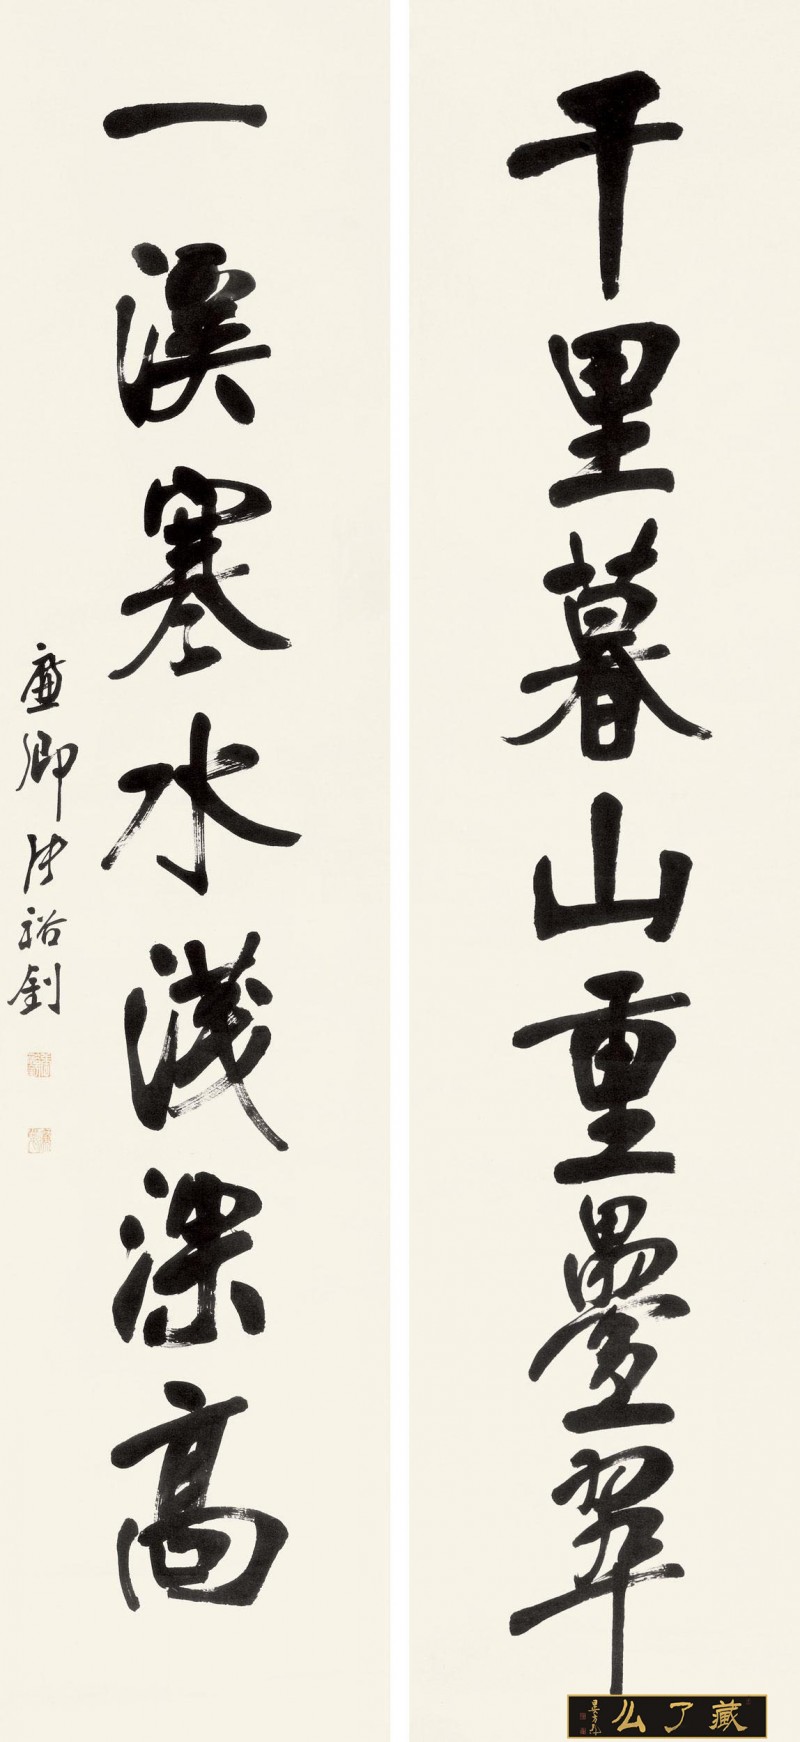 千里暮山重疊翠
一溪寒水淺深高
廉卿張裕釗
藏了么